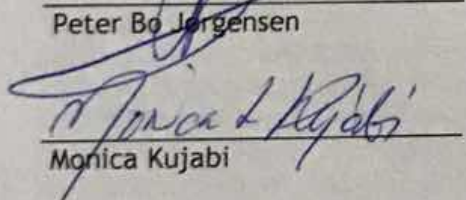 Peter Bo Jørgensen
Monica L Kujabi
Monica Kujabi